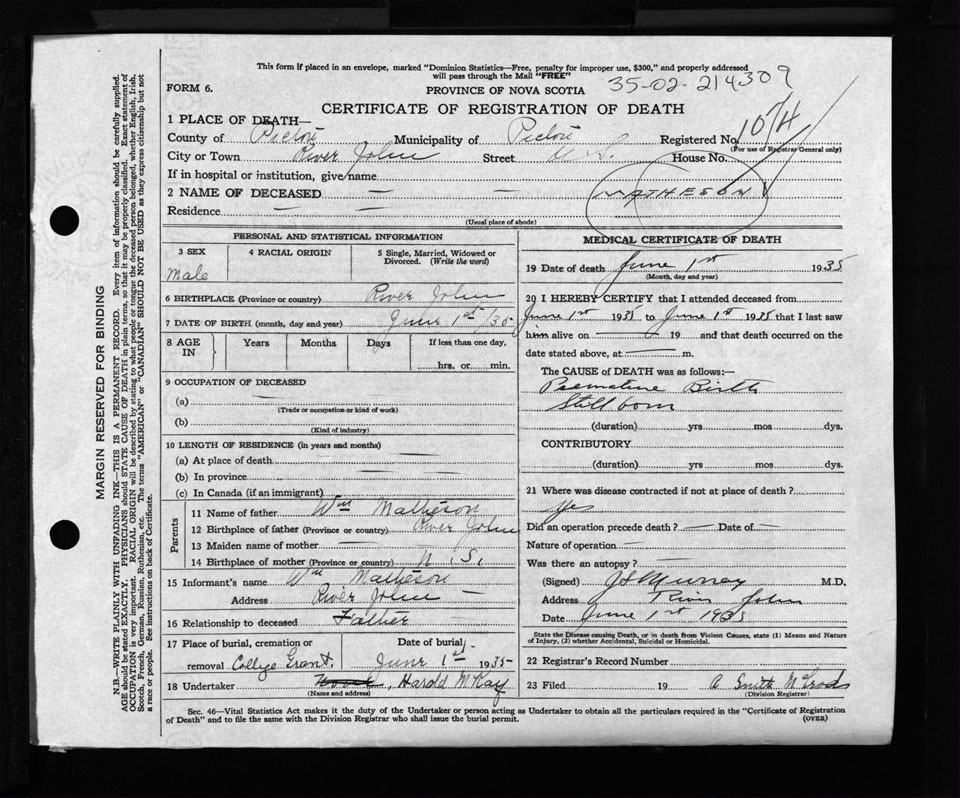 This form if placed in an envelope, marked "Dominion Statistics—Free, penalty for improper use, $300," and properly addressed
will pass through the Mail "FREE"
FORM 6.
PROVINCE OF NOVA SCOTIA
35-02-214309
CERTIFICATE OF REGISTRATION OF DEATH
1 PLACE OF DEATH—
County of Pictou Municipality of Pictou Registered No. 1074
(For use of Registrar General only)
City or Town River John Street N.S. House No.
If in hospital or institution, give name
2 NAME OF DECEASED — — MATHESON
Residence — —
(Usual place of abode)
PERSONAL AND STATISTICAL INFORMATION
3 SEX
Male
4 RACIAL ORIGIN
5 Single, Married, Widowed or
Divorced. (Write the word)
6 BIRTHPLACE (Province or country) River John
7 DATE OF BIRTH (month, day and year) June 1st/35
8 AGE IN
Years Months Days If less than one day,
hrs. or min.
9 OCCUPATION OF DECEASED
(a) —
(Trade or occupation or kind of work)
(b)
(Kind of industry)
10 LENGTH OF RESIDENCE (in years and months)
(a) At place of death — —
(b) In province — —
(c) In Canada (if an immigrant)
Parents
11 Name of father Wm Matheson
12 Birthplace of father (Province or country) River John
13 Maiden name of mother —
14 Birthplace of mother (Province or country) N.S.
15 Informant's name Wm Matheson
Address River John —
16 Relationship to deceased Father —
17 Place of burial, cremation or
removal College Grant.
Date of burial
June 1st 1935
18 Undertaker Harold McKay
(Name and address)
MEDICAL CERTIFICATE OF DEATH
19 Date of death June 1st 1935
(Month, day and year)
20 I HEREBY CERTIFY that I attended deceased from
June 1st 1935 to June 1st 1935 that I last saw
him alive on 19 and that death occurred on the
date stated above, at — m.
The CAUSE of DEATH was as follows:—
Premature Birth
Still born
(duration) yrs mos dys.
CONTRIBUTORY
(duration) yrs mos dys.
21 Where was disease contracted if not at place of death?
Yes
Did an operation precede death? — Date of —
Nature of operation —
Was there an autopsy? —
(Signed) J S Murray M.D.
Address River John
Date June 1st 1935
State the Disease causing Death, or in death from Violent Causes, state (1) Means and Nature
of Injury, (2) whether Accidental, Suicidal or Homicidal.
22 Registrar's Record Number
23 Filed 19 A Smith McLeod
(Division Registrar)
Sec. 46—Vital Statistics Act makes it the duty of the Undertaker or person acting as Undertaker to obtain all the particulars required in the "Certificate of Registration
of Death" and to file the same with the Division Registrar who shall issue the burial permit.
(OVER)
MARGIN RESERVED FOR BINDING
N.B.—WRITE PLAINLY WITH UNFADING INK—THIS IS A PERMANENT RECORD. Every item of information should be carefully supplied.
AGE should be stated EXACTLY. PHYSICIANS should STATE CAUSE OF DEATH in plain terms, so that it may be properly classified. Exact statement of
OCCUPATION is very important. RACIAL ORIGIN will be described by stating to what people or tongue the deceased person belonged, whether English, Irish,
Scotch, French, German, Russian, Ruthenian, etc. The terms "AMERICAN" or "CANADIAN" SHOULD NOT BE USED as they express citizenship but not
a race or people. See instructions on back of Certificate.